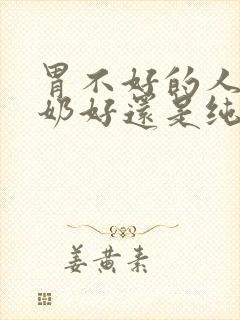 胃不好的人
奶好還是纯
姜黄素